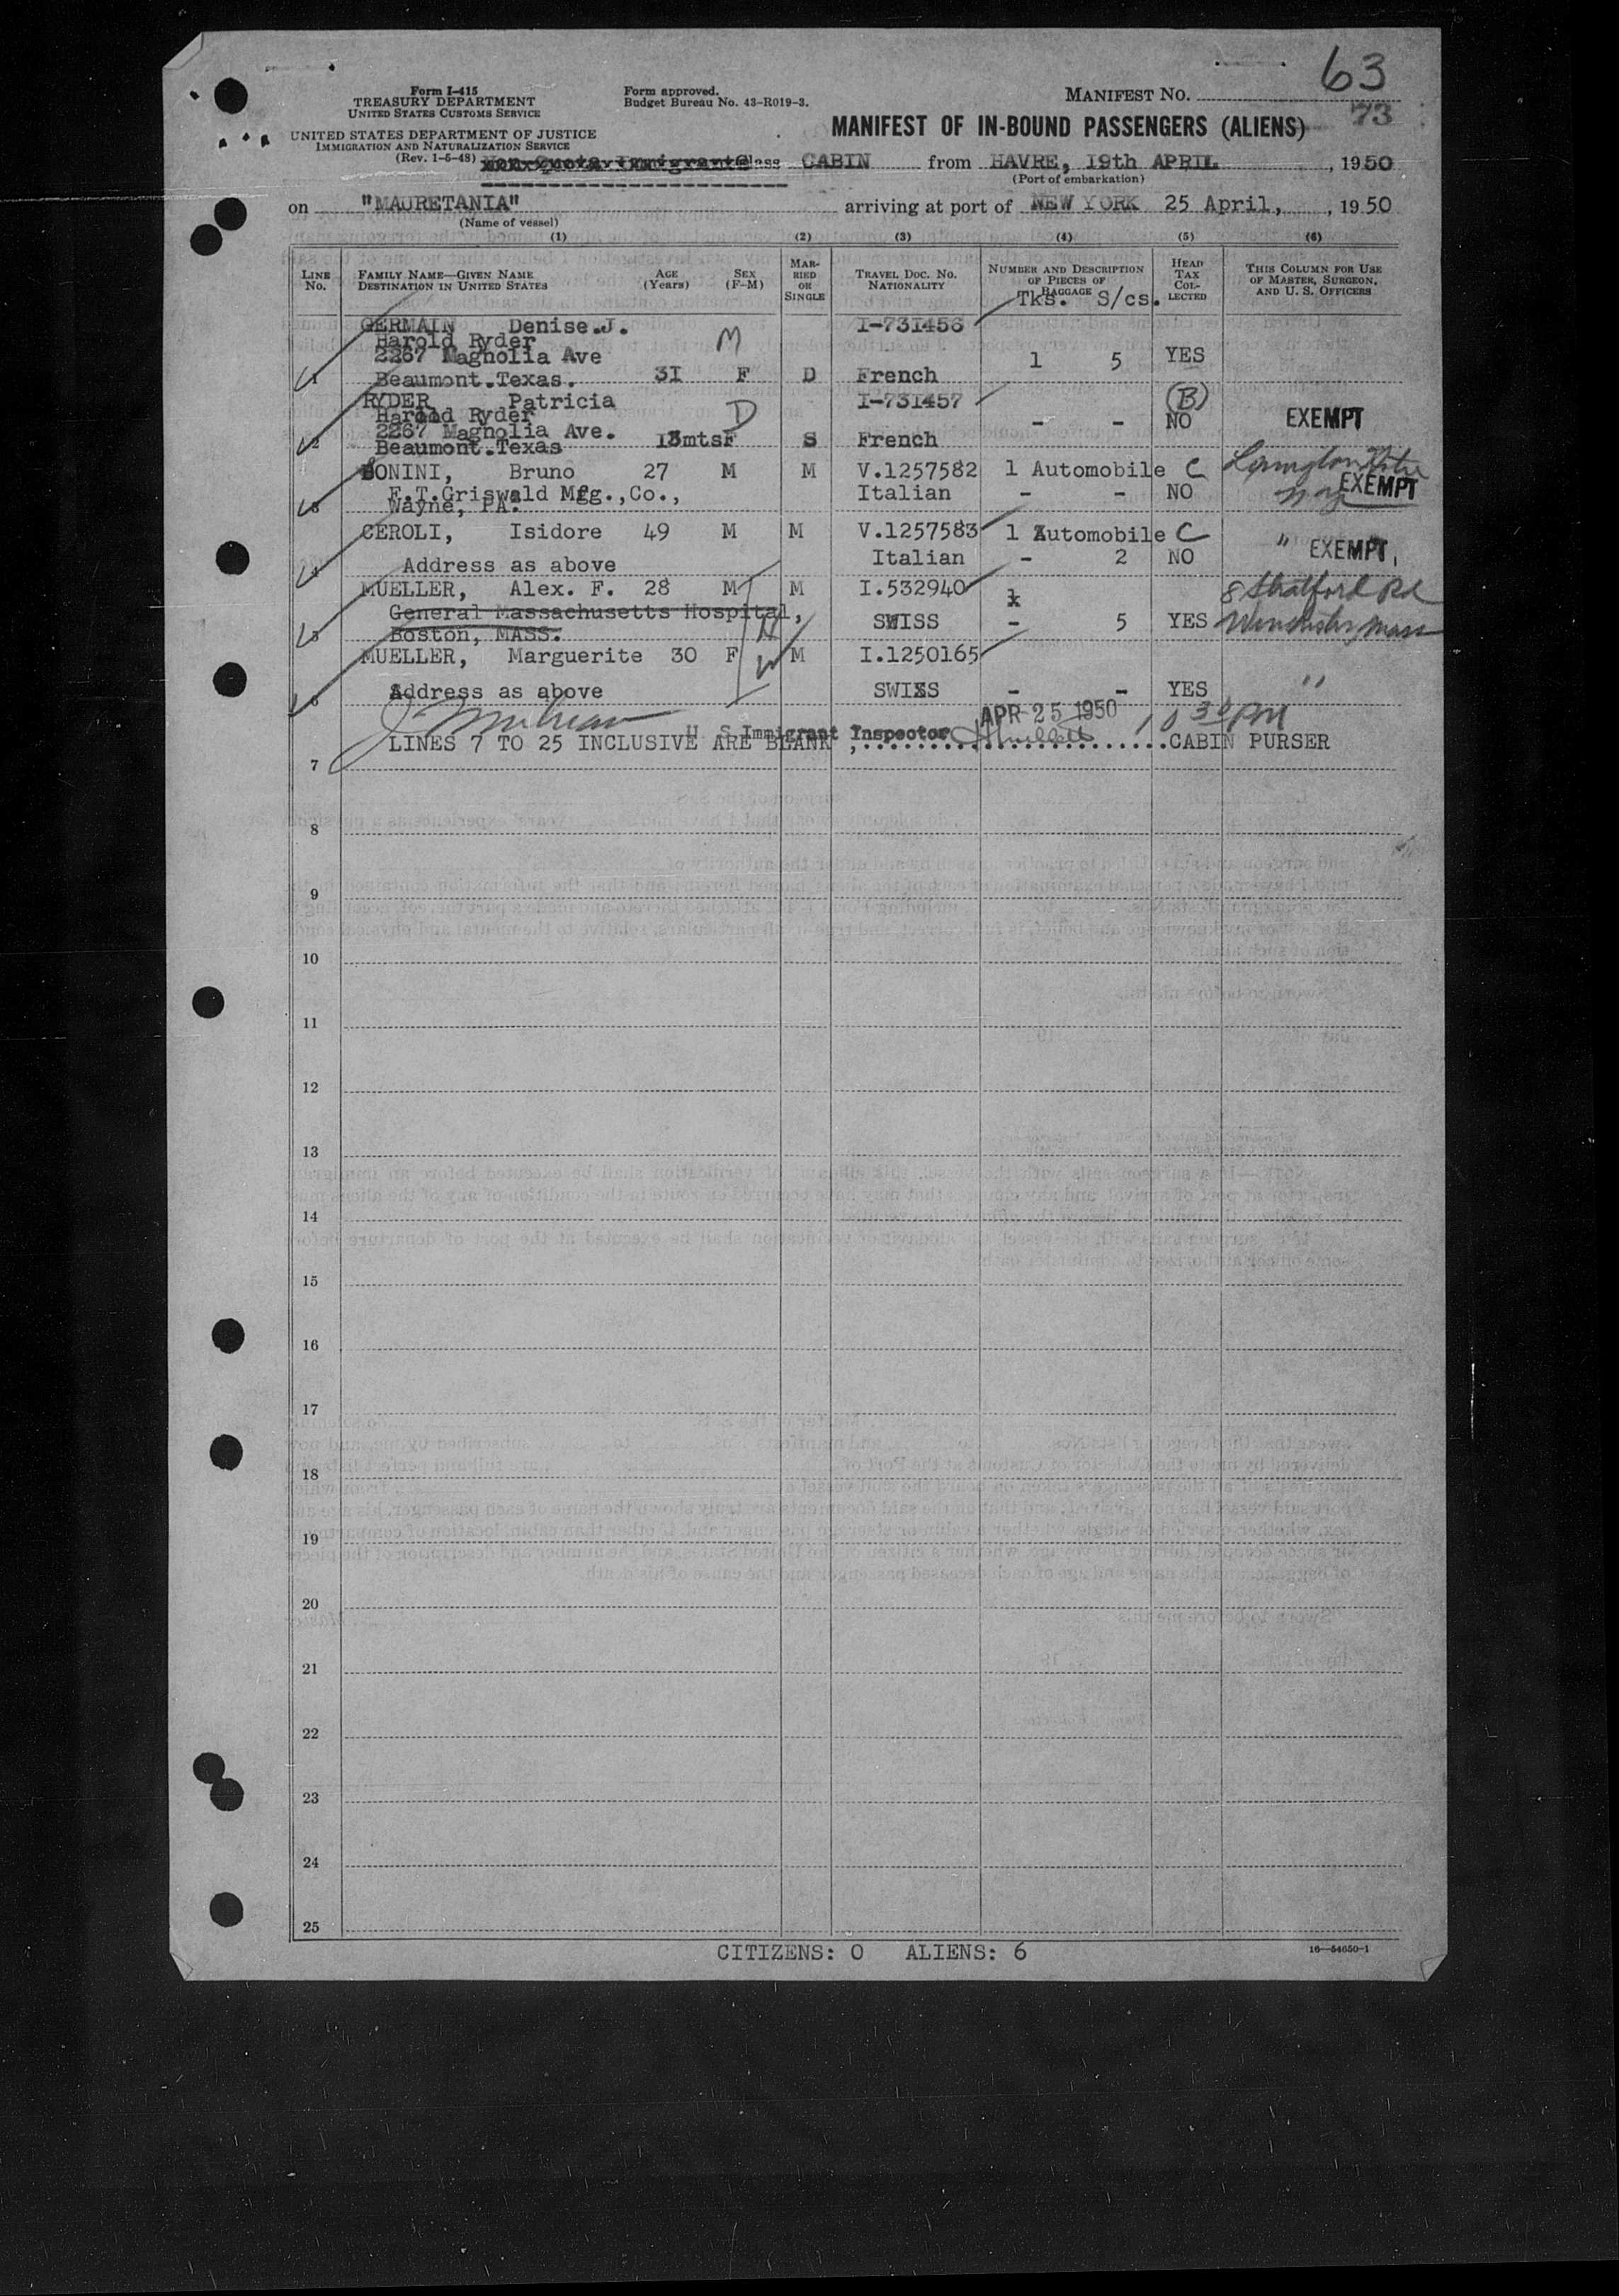 63
73
Form I-415
TREASURY DEPARTMENT
UNITED STATES CUSTOMS SERVICE
Form approved.
Budget Bureau No. 43-R019-3.
MANIFEST NO.
UNITED STATES DEPARTMENT OF JUSTICE
IMMIGRATION AND NATURALIZATION SERVICE
(Rev. 1-6-48)
MANIFEST OF IN-BOUND PASSENGERS (ALIENS)
Class CABIN from HAVRE, 19th APRIL, 1950
(Port of embarkation)
on "MAURETANIA" arriving at port of NEW YORK 25 April, , 1950
(Name of vessel)
(1) (2) (3) (4) (5) (6)
LINE No.
FAMILY NAME—GIVEN NAME
DESTINATION IN UNITED STATES
AGE (Years)
SEX (F-M)
MARRIED OR SINGLE
TRAVEL DOC. NO.
NATIONALITY
NUMBER AND DESCRIPTION OF PIECES OF BAGGAGE
Tks. S/cs.
HEAD TAX COLLECTED
THIS COLUMN FOR USE OF MASTER, SURGEON, AND U. S. OFFICERS
GERMAIN Denise.J. I-731456
Harold Ryder M
2267 Magnolia Ave 1 5 YES
1 Beaumont.Texas. 31 F D French
RYDER Patricia I-731457 (B)
Harold Ryder D - - NO EXEMPT
2267 Magnolia Ave. 13mts F S French
2 Beaumont.Texas
BONINI, Bruno 27 M M V.1257582 1 Automobile C
E.T.Griswald Mfg.,Co., Italian - - NO EXEMPT
3 Wayne, PA.
CEROLI, Isidore 49 M M V.1257583 1 Automobile C
" EXEMPT
4 Address as above Italian - 2 NO
MUELLER, Alex. F. 28 M M I.532940
8 Stratford Rd
General Massachusetts Hospital, SWISS - 5 YES Winchester, Mass
5 Boston, MASS.
MUELLER, Marguerite 30 F M I.1250165
6 Address as above SWISS - - YES "
APR 25 1950
10 30 PM
U. S Immigrant Inspector
LINES 7 TO 25 INCLUSIVE ARE BLANK ,........................CABIN PURSER
7
8
9
10
11
12
13
14
15
16
17
18
19
20
21
22
23
24
25
CITIZENS: 0 ALIENS: 6
16—54650-1